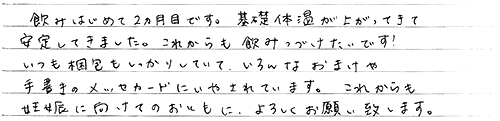 飲みはじめて2ヵ月目です。基礎体温が上がってきて
安定してきました。これからも飲みつづけたいです!
いつも梱包もしっかりしていて、いろんなおまけや
手書きのメッセカードにいやされています。これからも
妊娠に向けてのおともに、よろしくお願い致します。